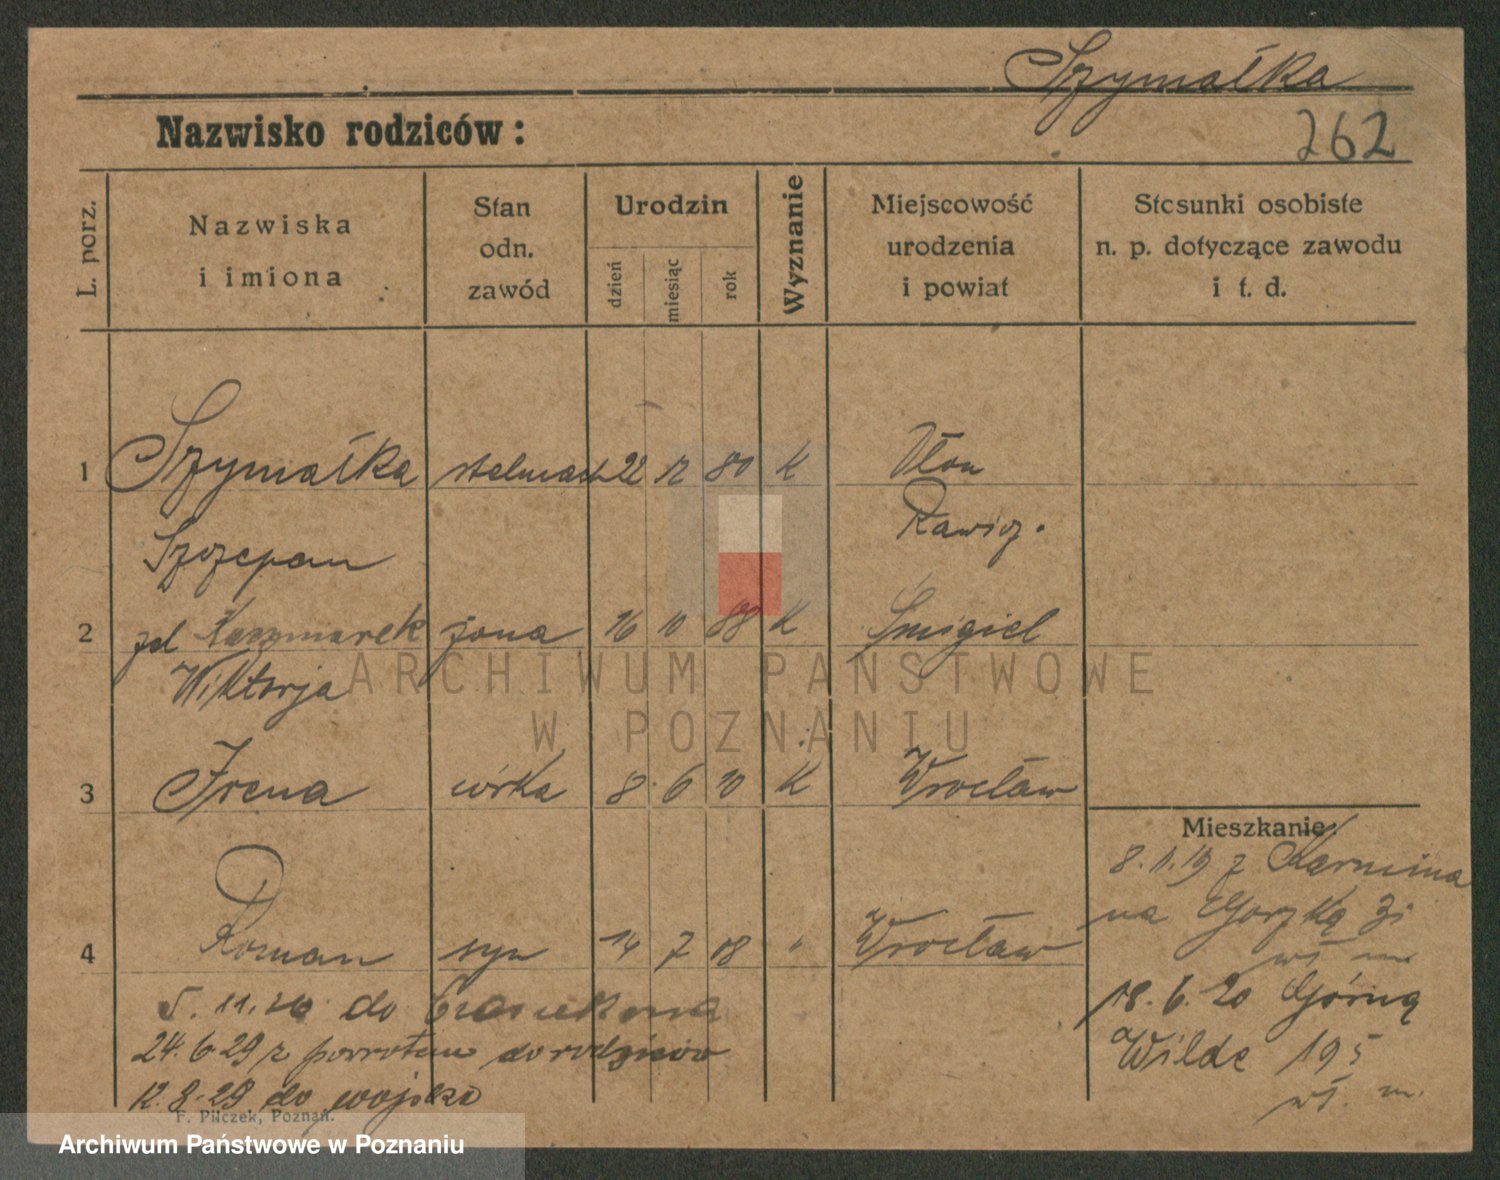 Szymałka
Nazwisko rodziców:
262
L. porz.
Nazwiska
i imiona
Stan
odn.
zawód
Urodzin
dzień
miesiąc
rok
Wyznanie
Miejscowość
urodzenia
i powiat
Stosunki osobiste
n. p. dotyczące zawodu
i t. d.
1 Szymałka stelmach 22 12 80 K
Rawicz.
Szczepan
2 zd Kaczmarek żona 16 10 88 K Śmigiel
Wiktorja
ARCHIWUM PAŃSTWOWE
W POZNANIU
3 Irena córka 8 6 10 K Wrocław
Mieszkanie:
8.11.19 z
na Gorzką
4 Roman syn 14 7 18 " Wrocław
18.6.20 Górną
Wilde 195
wł. m.
5.11.26 do
24.6.29 z powrotem do rodziców
12.8.29 do wojska
F. Pilczek, Poznań.
Archiwum Państwowe w Poznaniu